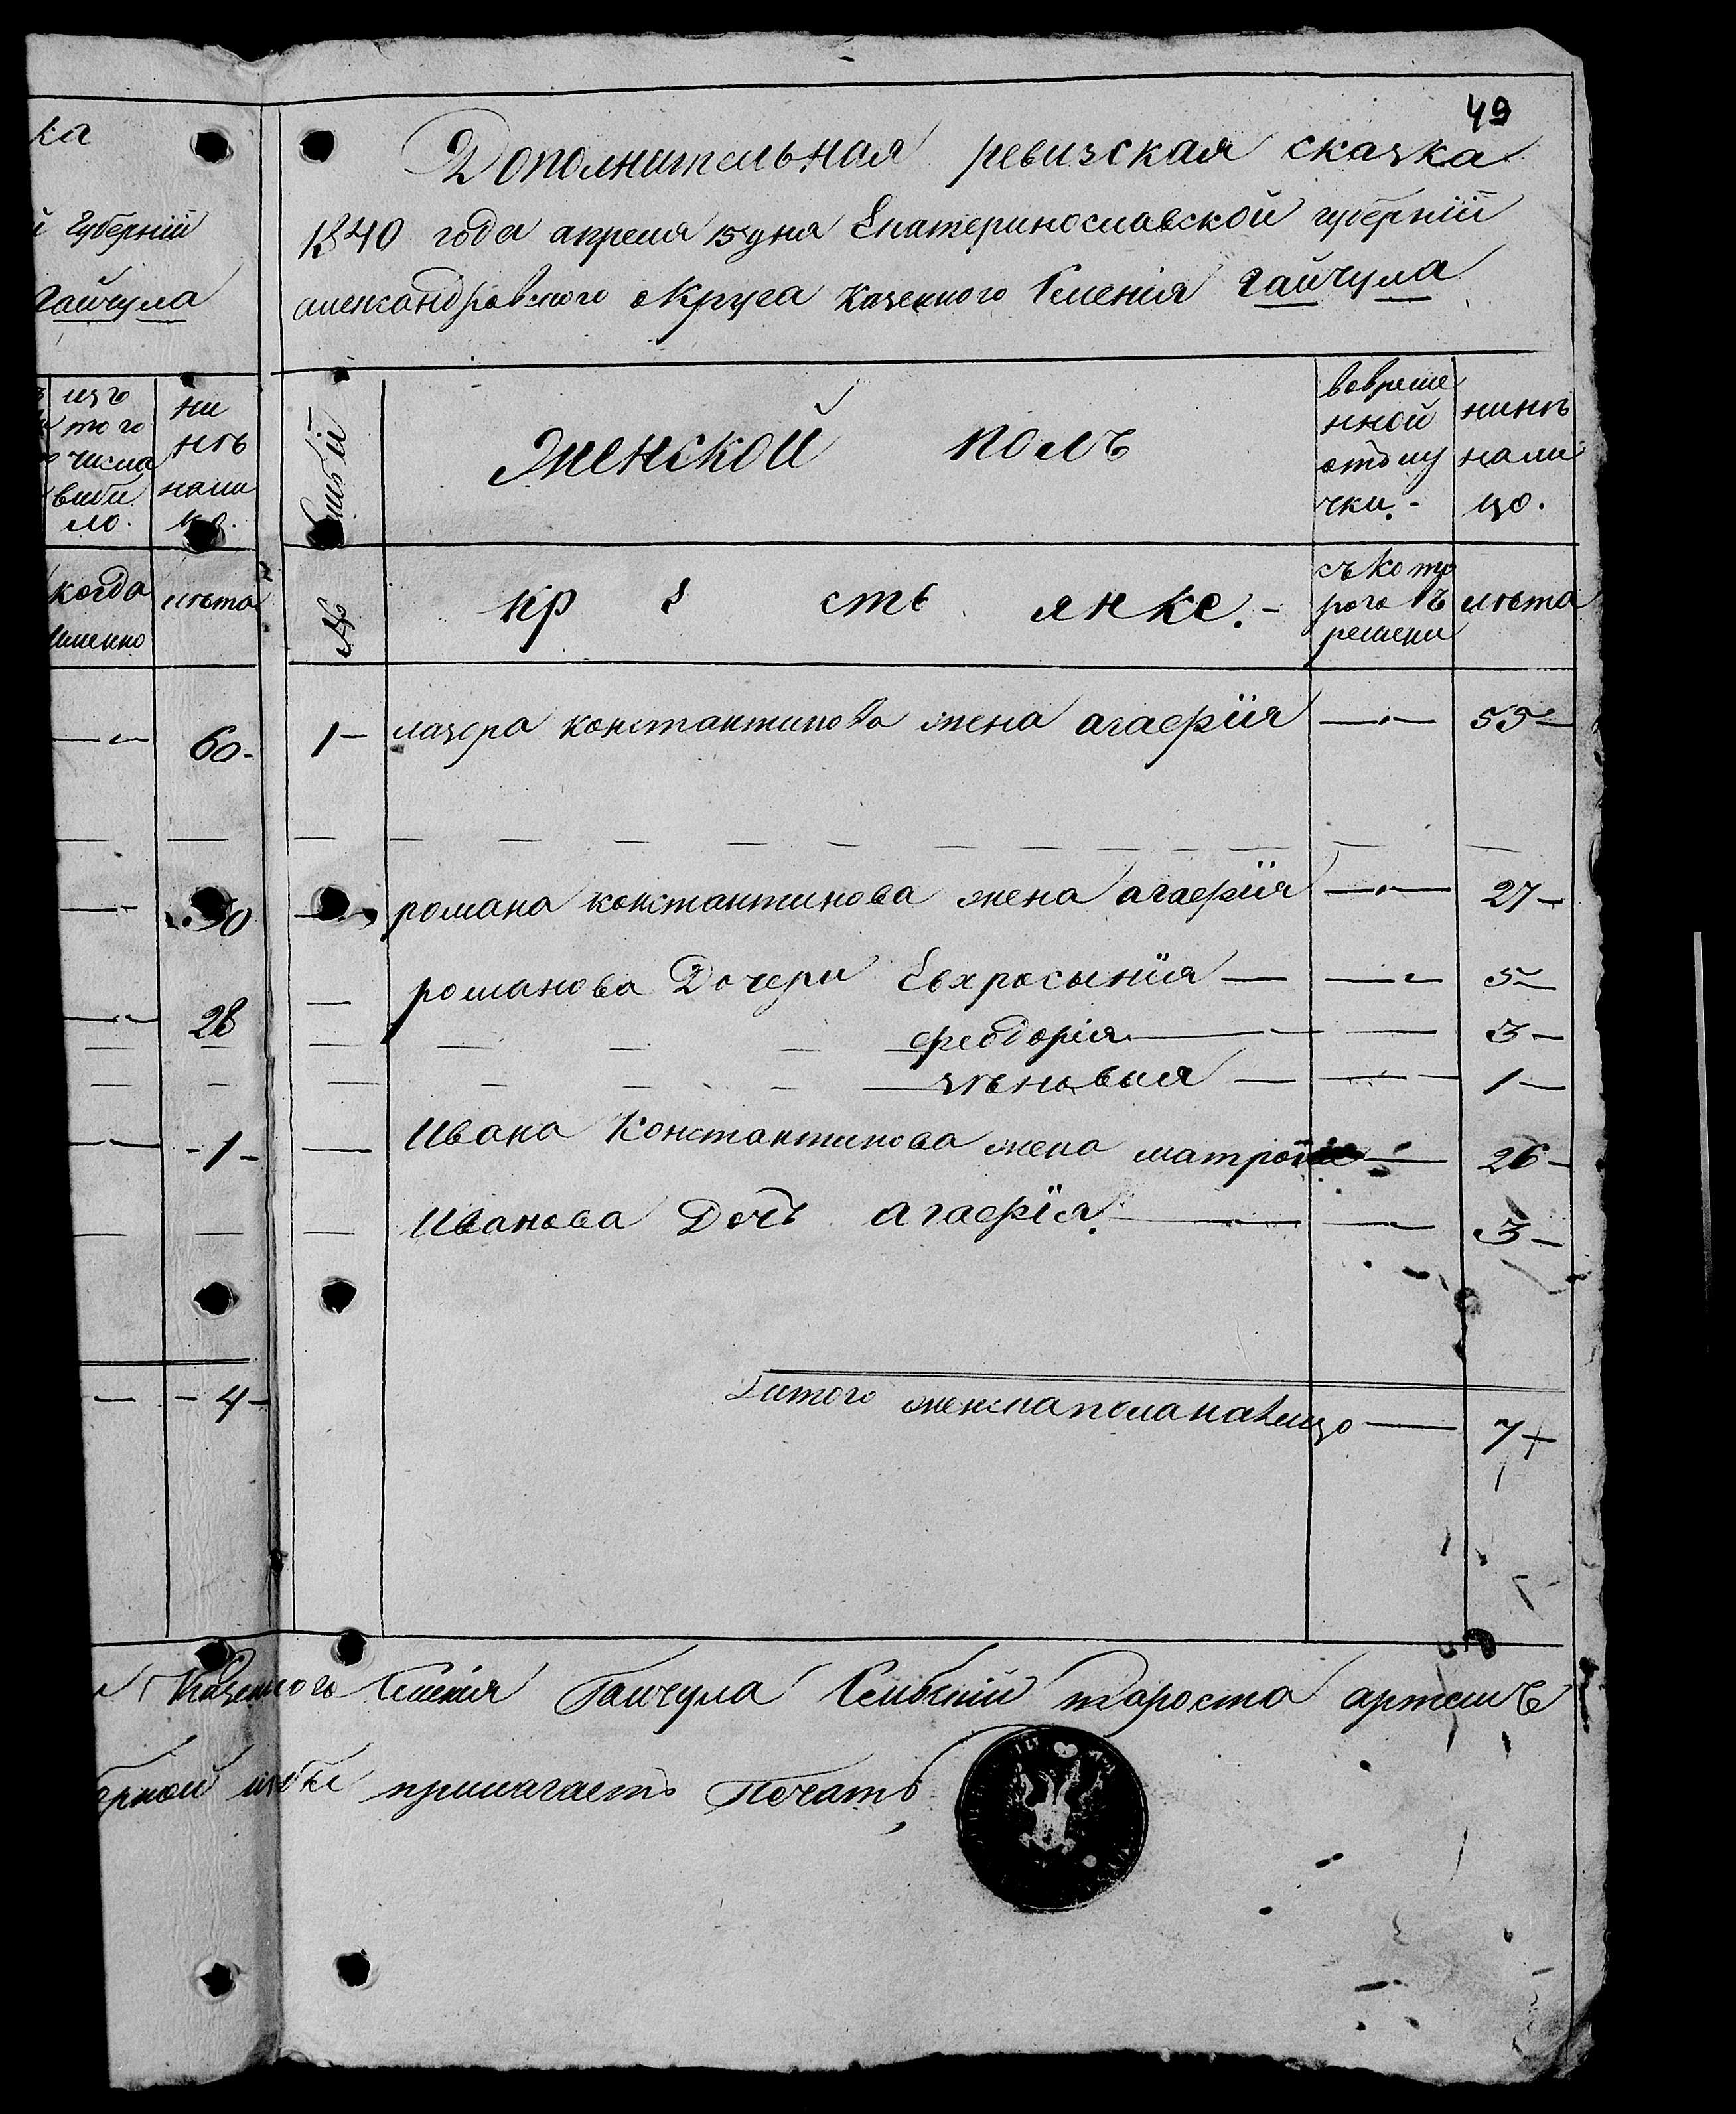 49
ка
Дополнительная ревизская сказка
й губернiи
1840 года апреля 15 дня Екатеринославской губернiи
Гайчула
александровского округа казенного Селенiя Гайчула
изъ
того
числа
выбы
ло.
ни
нѣ
нали
цо.
Женской полъ
вовреме
нной
отлу
чки.-
нинѣ
нали
цо.
когда
именно
лѣта
№
кр е сть янке.-
съ кото
рого ъ
времени
лѣта
60-
1- лазора константинова жена агафiя 59-
30
романа константинова жена агафiя 27-
романова Дочери Евхросынiя 5-
28
феодорiя 3-
зѣновыя 1-
-1-
Ивана Константинова жена матрона 26-
Иванова Дочь агафiя. 3-
-4-
итого женска пола налицо 7
Казенного Селенiя Гайчула Сельскiй староста артемъ
избы прилагаетъ Печать